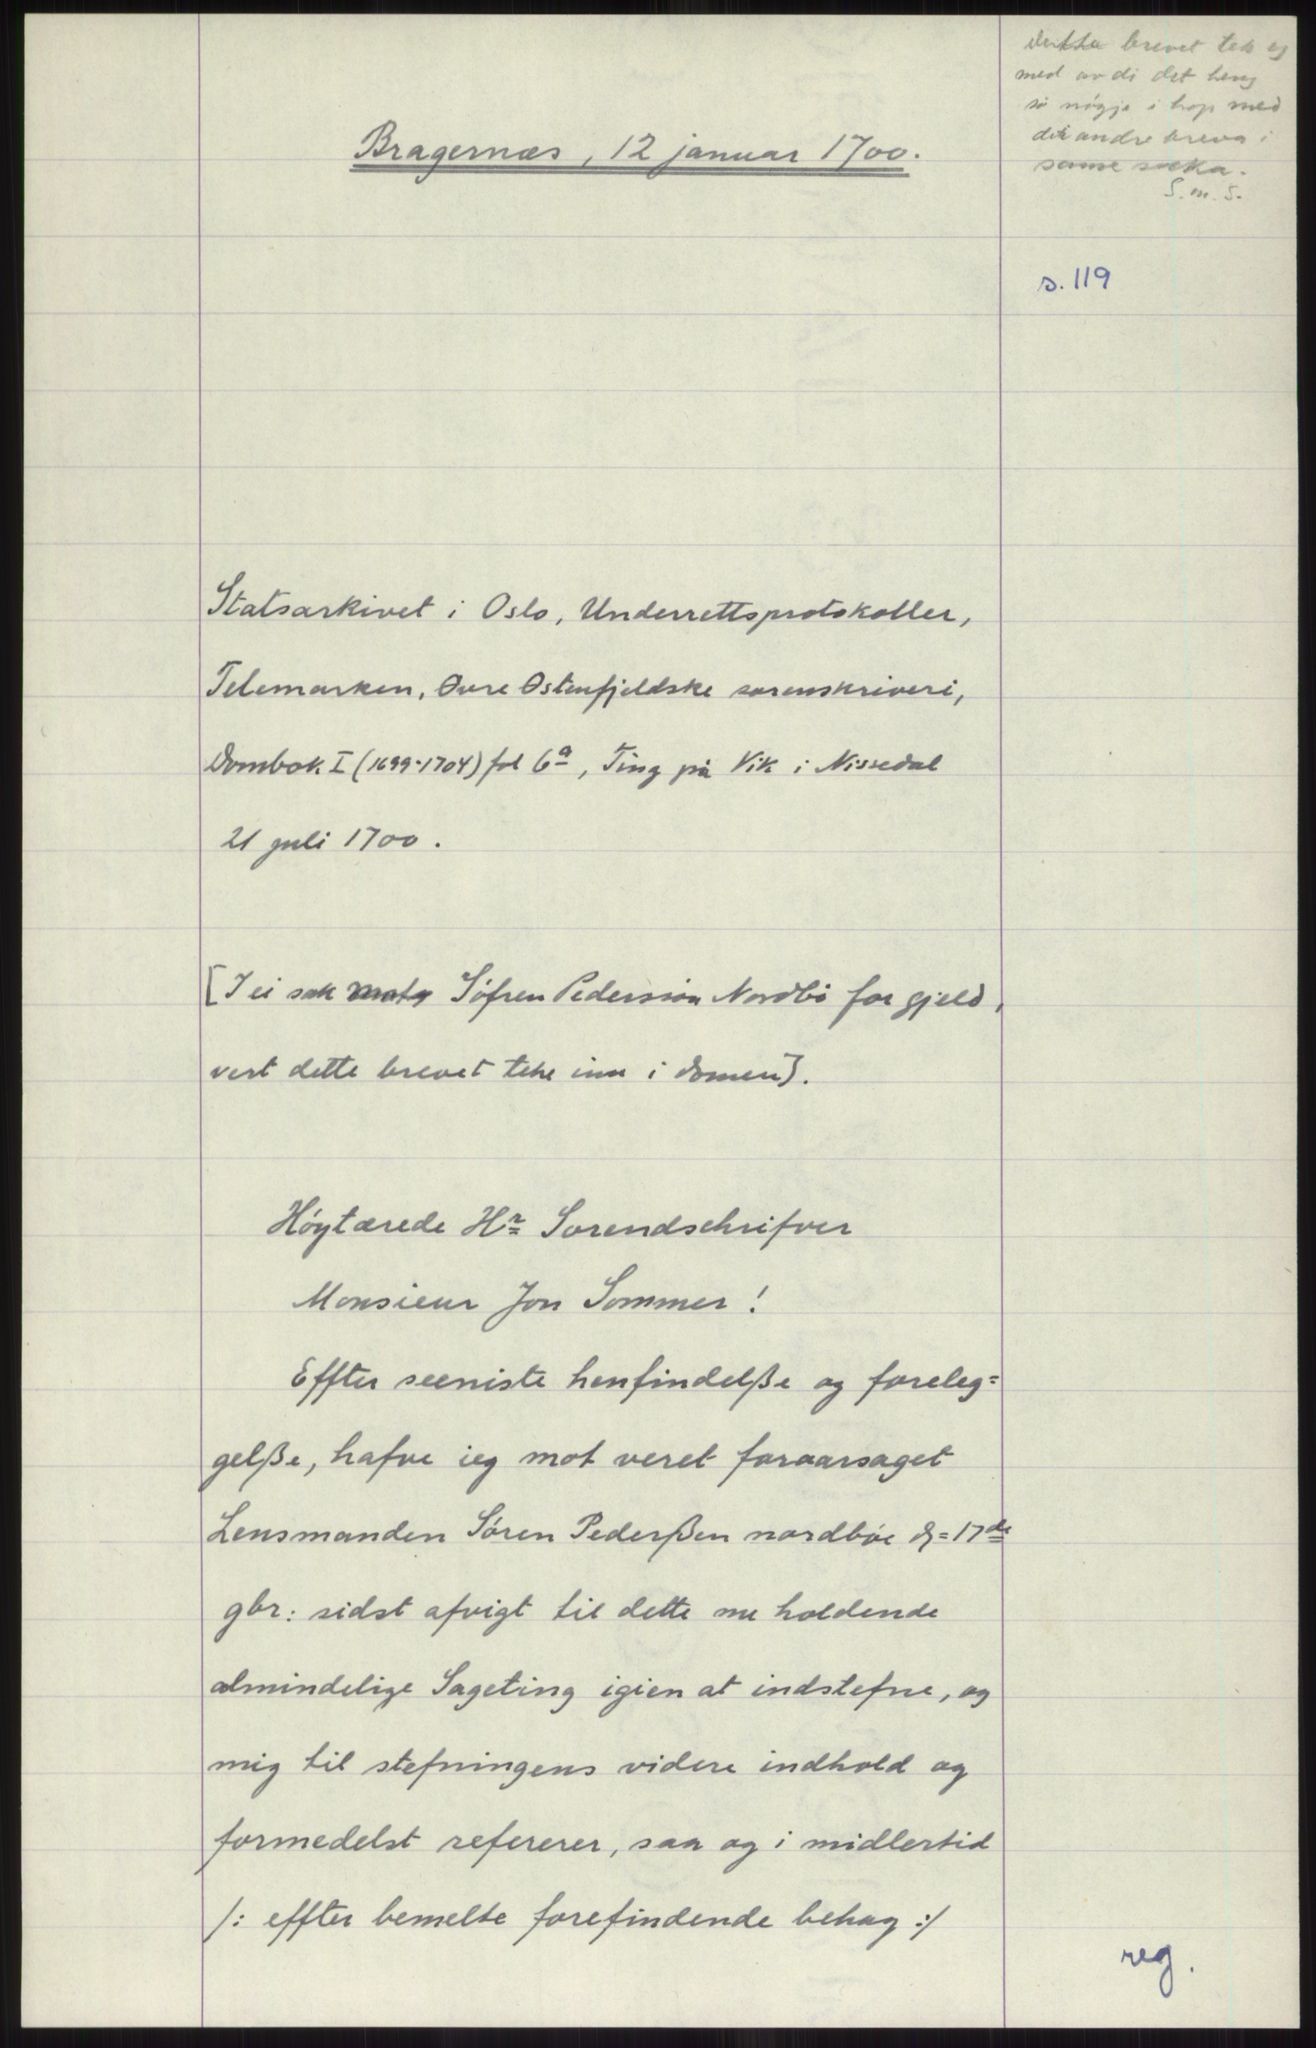 Bragernæs, 12 januar 1700.
dette brevet tek eg
med av di det heng
så nøgje i hop med
dei andre breva i
same saka.
S. m. S.
s. 119
Statsarkivet i Oslo, Underrettsprotokoller,
Telemarken, Øvre Østenfjeldske sorenskriveri,
Dombok I (1699-1704) fol 6a, Ting på Vik i Nissedal
21 juli 1700.
[I ei sak mot Søfren Pederssøn Nordbø for gjeld,
vert dette brevet teke inn i domen].
Høytærede Hr Sorendschrifver
Monsieur Jon Sommer!
Effter seeniste henfindelße og foreleg=
gelße, hafve ieg mot veret foraarsaget
Lensmanden Søren Pederßen nordbøe d=17de
9br: sidst afvigt til dette nu holdende
almindelige Sageting igien at indstefne, og
mig til stefningens videre indhold og
formedelst refererer, saa og i midlertid
/: effter bemelte forefindende behag :/
reg.